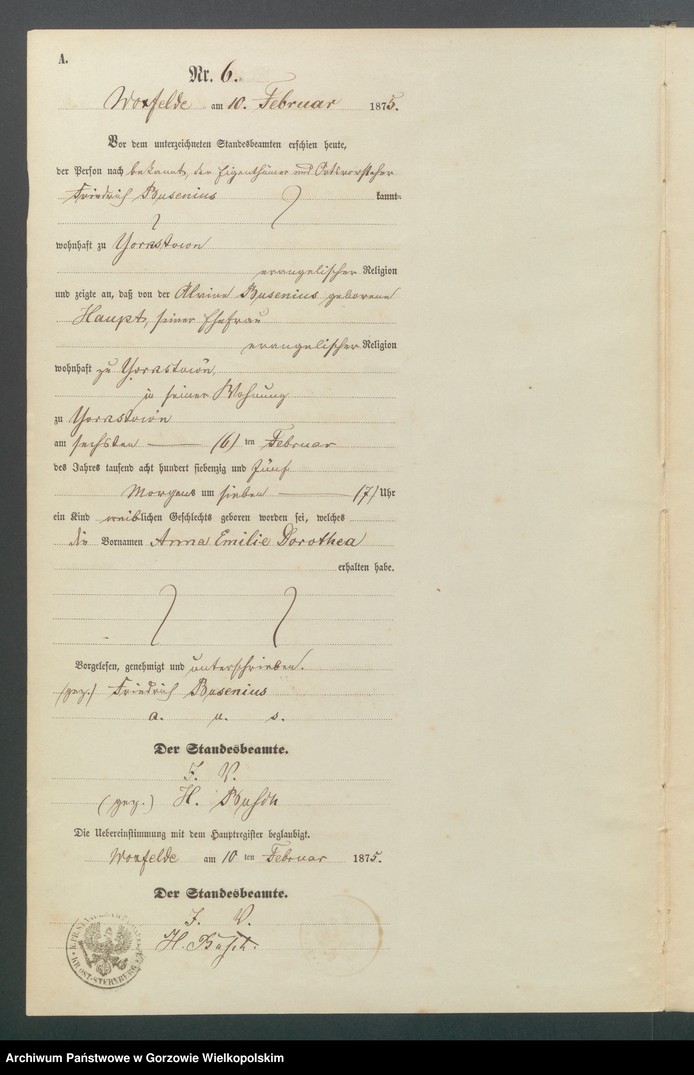 A.
Nr. 6.
Woxfelde am 10. Februar 1875.
Vor dem unterzeichneten Standesbeamten erschien heute,
der Person nach bekannt, der Eigenthümer und Ortsvorsteher
Friedrich Busenius kannt-
wohnhaft zu Yorkstown
evangelischer Religion
und zeigte an, daß von der Alvine Busenius geborene
Haupt, seiner Ehefrau
evangelischer Religion
wohnhaft zu Yorkstown,
in seiner Wohnung
zu Yorkstown
am sechsten (6) ten Februar
des Jahres tausend acht hundert siebenzig und fünf
Morgens um sieben (7) Uhr
ein Kind weiblichen Geschlechts geboren worden sei, welches
die Vornamen Anna Emilie Dorothea
erhalten habe.
Vorgelesen, genehmigt und unterschrieben.
(gez.) Friedrich Busenius
a. u. s.
Der Standesbeamte.
I. V.
(gez.) H. Busch
Die Uebereinstimmung mit dem Hauptregister beglaubigt.
Woxfelde am 10 ten Februar 1875.
Der Standesbeamte.
I. V.
H. Busch.
KR. OST-STERNBERG
Archiwum Państwowe w Gorzowie Wielkopolskim